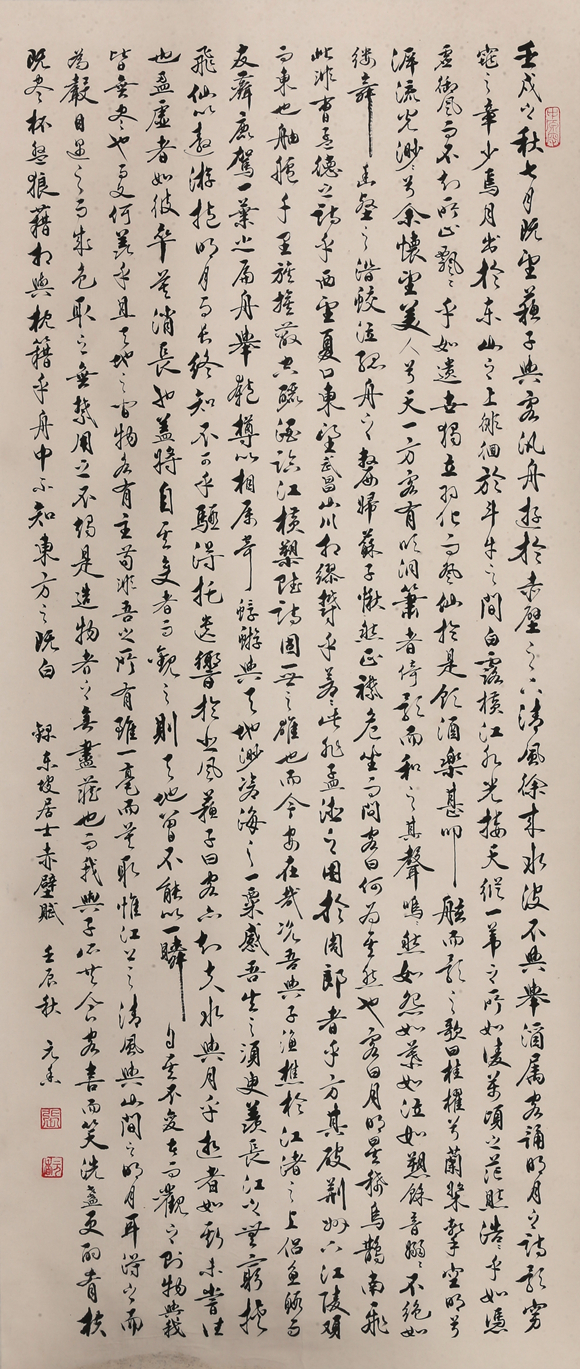 壬戌之秋七月既望蘇子與客汎舟遊於赤壁之下清風徐来水波不興舉酒属客誦明月之詩歌窈
窕之章少焉月出於東山之上徘徊於斗牛之間白露横江水光接天縱一葦之所如凌萬頃之茫然浩浩乎如馮
虚御風而不知所止飄飄乎如遺世獨立羽化而登仙於是飲酒樂甚叩舷而歌之歌曰桂櫂兮蘭槳擊空明兮
泝流光渺兮余懷望美人兮天一方客有吹洞簫者倚歌而和之其聲嗚嗚然如怨如慕如泣如愬餘音嫋嫋不绝如
缕舞幽壑之潛蛟泣孤舟之嫠婦蘇子愀然正襟危坐而問客曰何為其然也客曰月明星稀烏鵲南飛
此非曹孟德之詩乎西望夏口東望武昌山川相缪欝乎蒼蒼此非孟德之困於周郎者乎方其破荆州下江陵順
而東也舳艫千里旌旗蔽空釃酒臨江横槊賦詩固一世之雄也而今安在哉况吾與子漁樵於江渚之上侣魚蝦而
友麋鹿駕一葉之扁舟舉匏樽以相属寄蜉蝣與天地渺滄海之一粟哀吾生之須臾羡長江之無窮挾
飛仙以遨游抱明月而長终知不可乎驟得托遗響於悲風蘇子曰客亦知夫水與月乎逝者如斯未嘗往
也盈虚者如彼卒莫消長也蓋將自其变者而觀之則天地曾不能以一瞬自其不变者而觀之则物與我
皆無尽也又何羡乎且夫天地之間物各有主苟非吾之所有雖一毫而莫取惟江上之清風與山間之明月耳得之而
為聲目遇之而成色取之無禁用之不竭是造物者之無盡藏也而我與子所共食客喜而笑洗盏更酌肴核
既尽杯盤狼藉相與枕籍乎舟中不知東方之既白 録東坡居士赤壁賦 壬辰秋